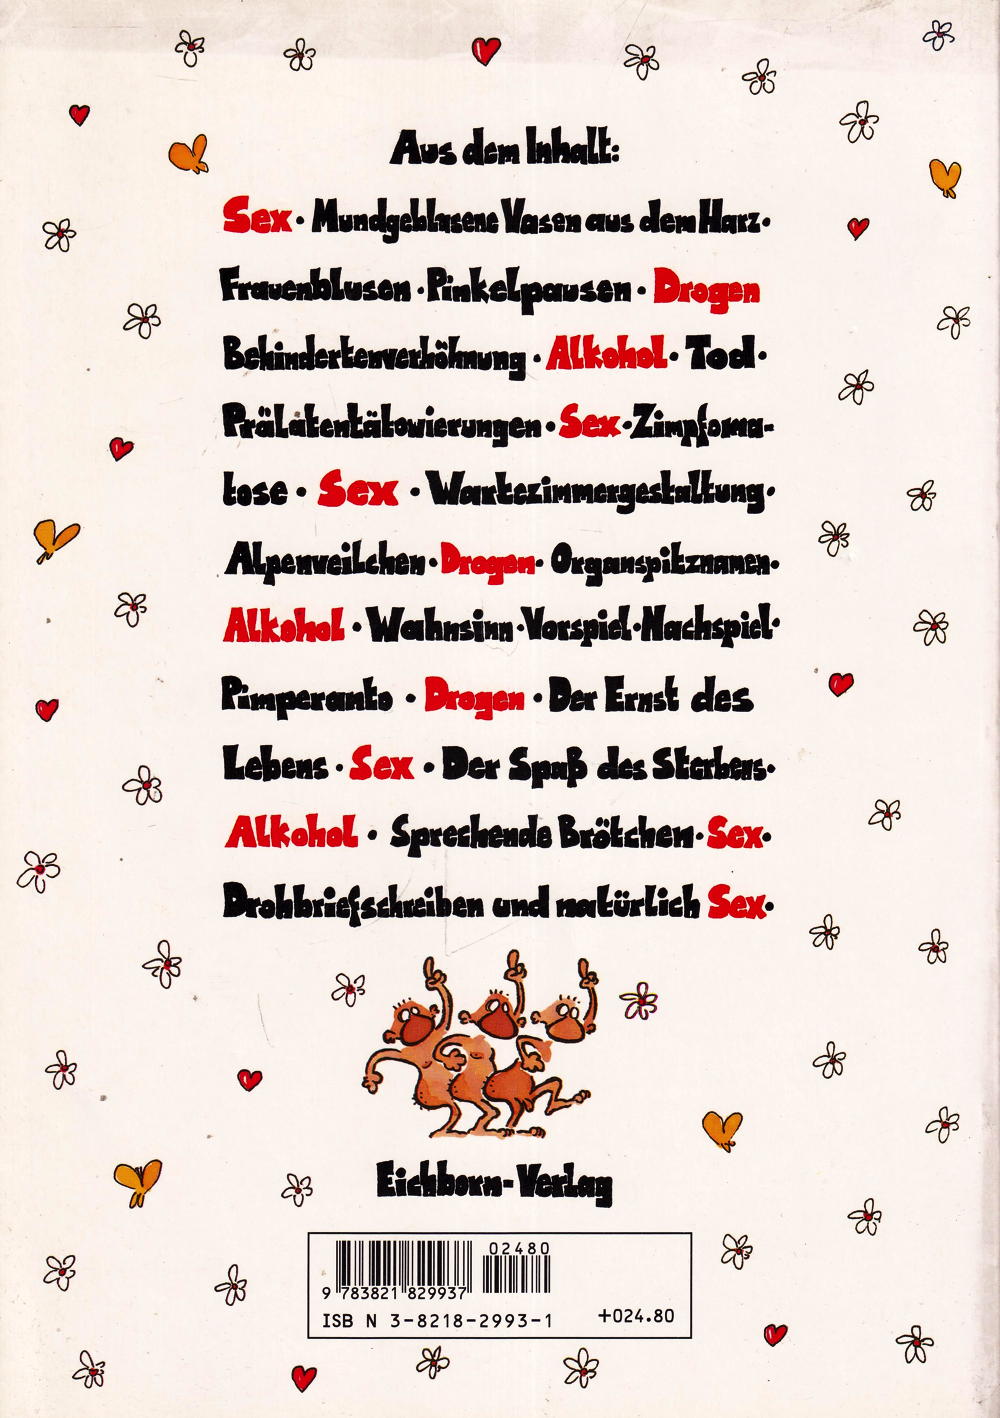 Aus dem Inhalt:
Sex · Mundgeblasene Vasen aus dem Harz ·
Frauenblusen · Pinkelpausen · Drogen
Behindertenverhöhnung · Alkohol · Tod ·
Prälatentätowierungen · Sex · Zimpfoma-
tose · Sex · Wartezimmergestaltung ·
Alpenveilchen · Drogen · Organspitznamen ·
Alkohol · Wahnsinn · Vorspiel · Nachspiel ·
Pimperanto · Drogen · Der Ernst des
Lebens · Sex · Der Spaß des Sterbens ·
Alkohol · Sprechende Brötchen · Sex ·
Drohbriefschreiben und natürlich Sex ·
Eichborn-Verlag
02480
9 783821 829937
ISBN 3-8218-2993-1 +024.80